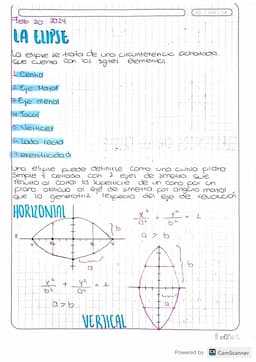 Feb 20 2024
LA ELIPSE
La elipse se trata de una circunferencia achatada.
que cuenta con los sgtes elementos
1. Centro
2. Eje Mayor
3. Eje menor
4. Focos
5. Vertices
6. Lado recto
7. excentricidad
una elipse puede definirse como una curva plana
simple y cerrada con 2 ejes de simetria que
resulta al cortar la superficie de un cono por un
plano oblicuo al eje de simetria por angulo mayor
que la generatriz respecto del eje de revolucion
HORIZONTAL
x² / a² + y² / b² = 1
a > b
b
a
x² / b² + y² / a² = 1
a > b
b
a
VERTICAL
Powered by CS CamScanner